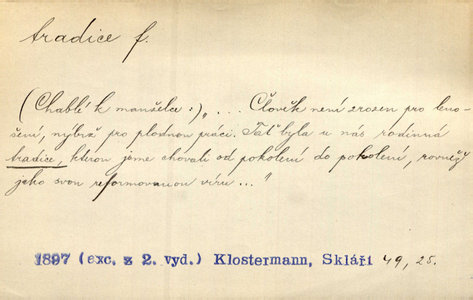 tradice f.
(Chablé k manželce:) „.... Člověk není zrozen pro leno-
šení, nýbrž pro plodnou práci. Tať byla u nás rodinná
tradice, kterou jsme chovali od pokolení do pokolení, rovněž
jako svou reformovanou víru ..."
1897 (exc. z 2. vyd.) Klostermann, Skláři 49, 25.